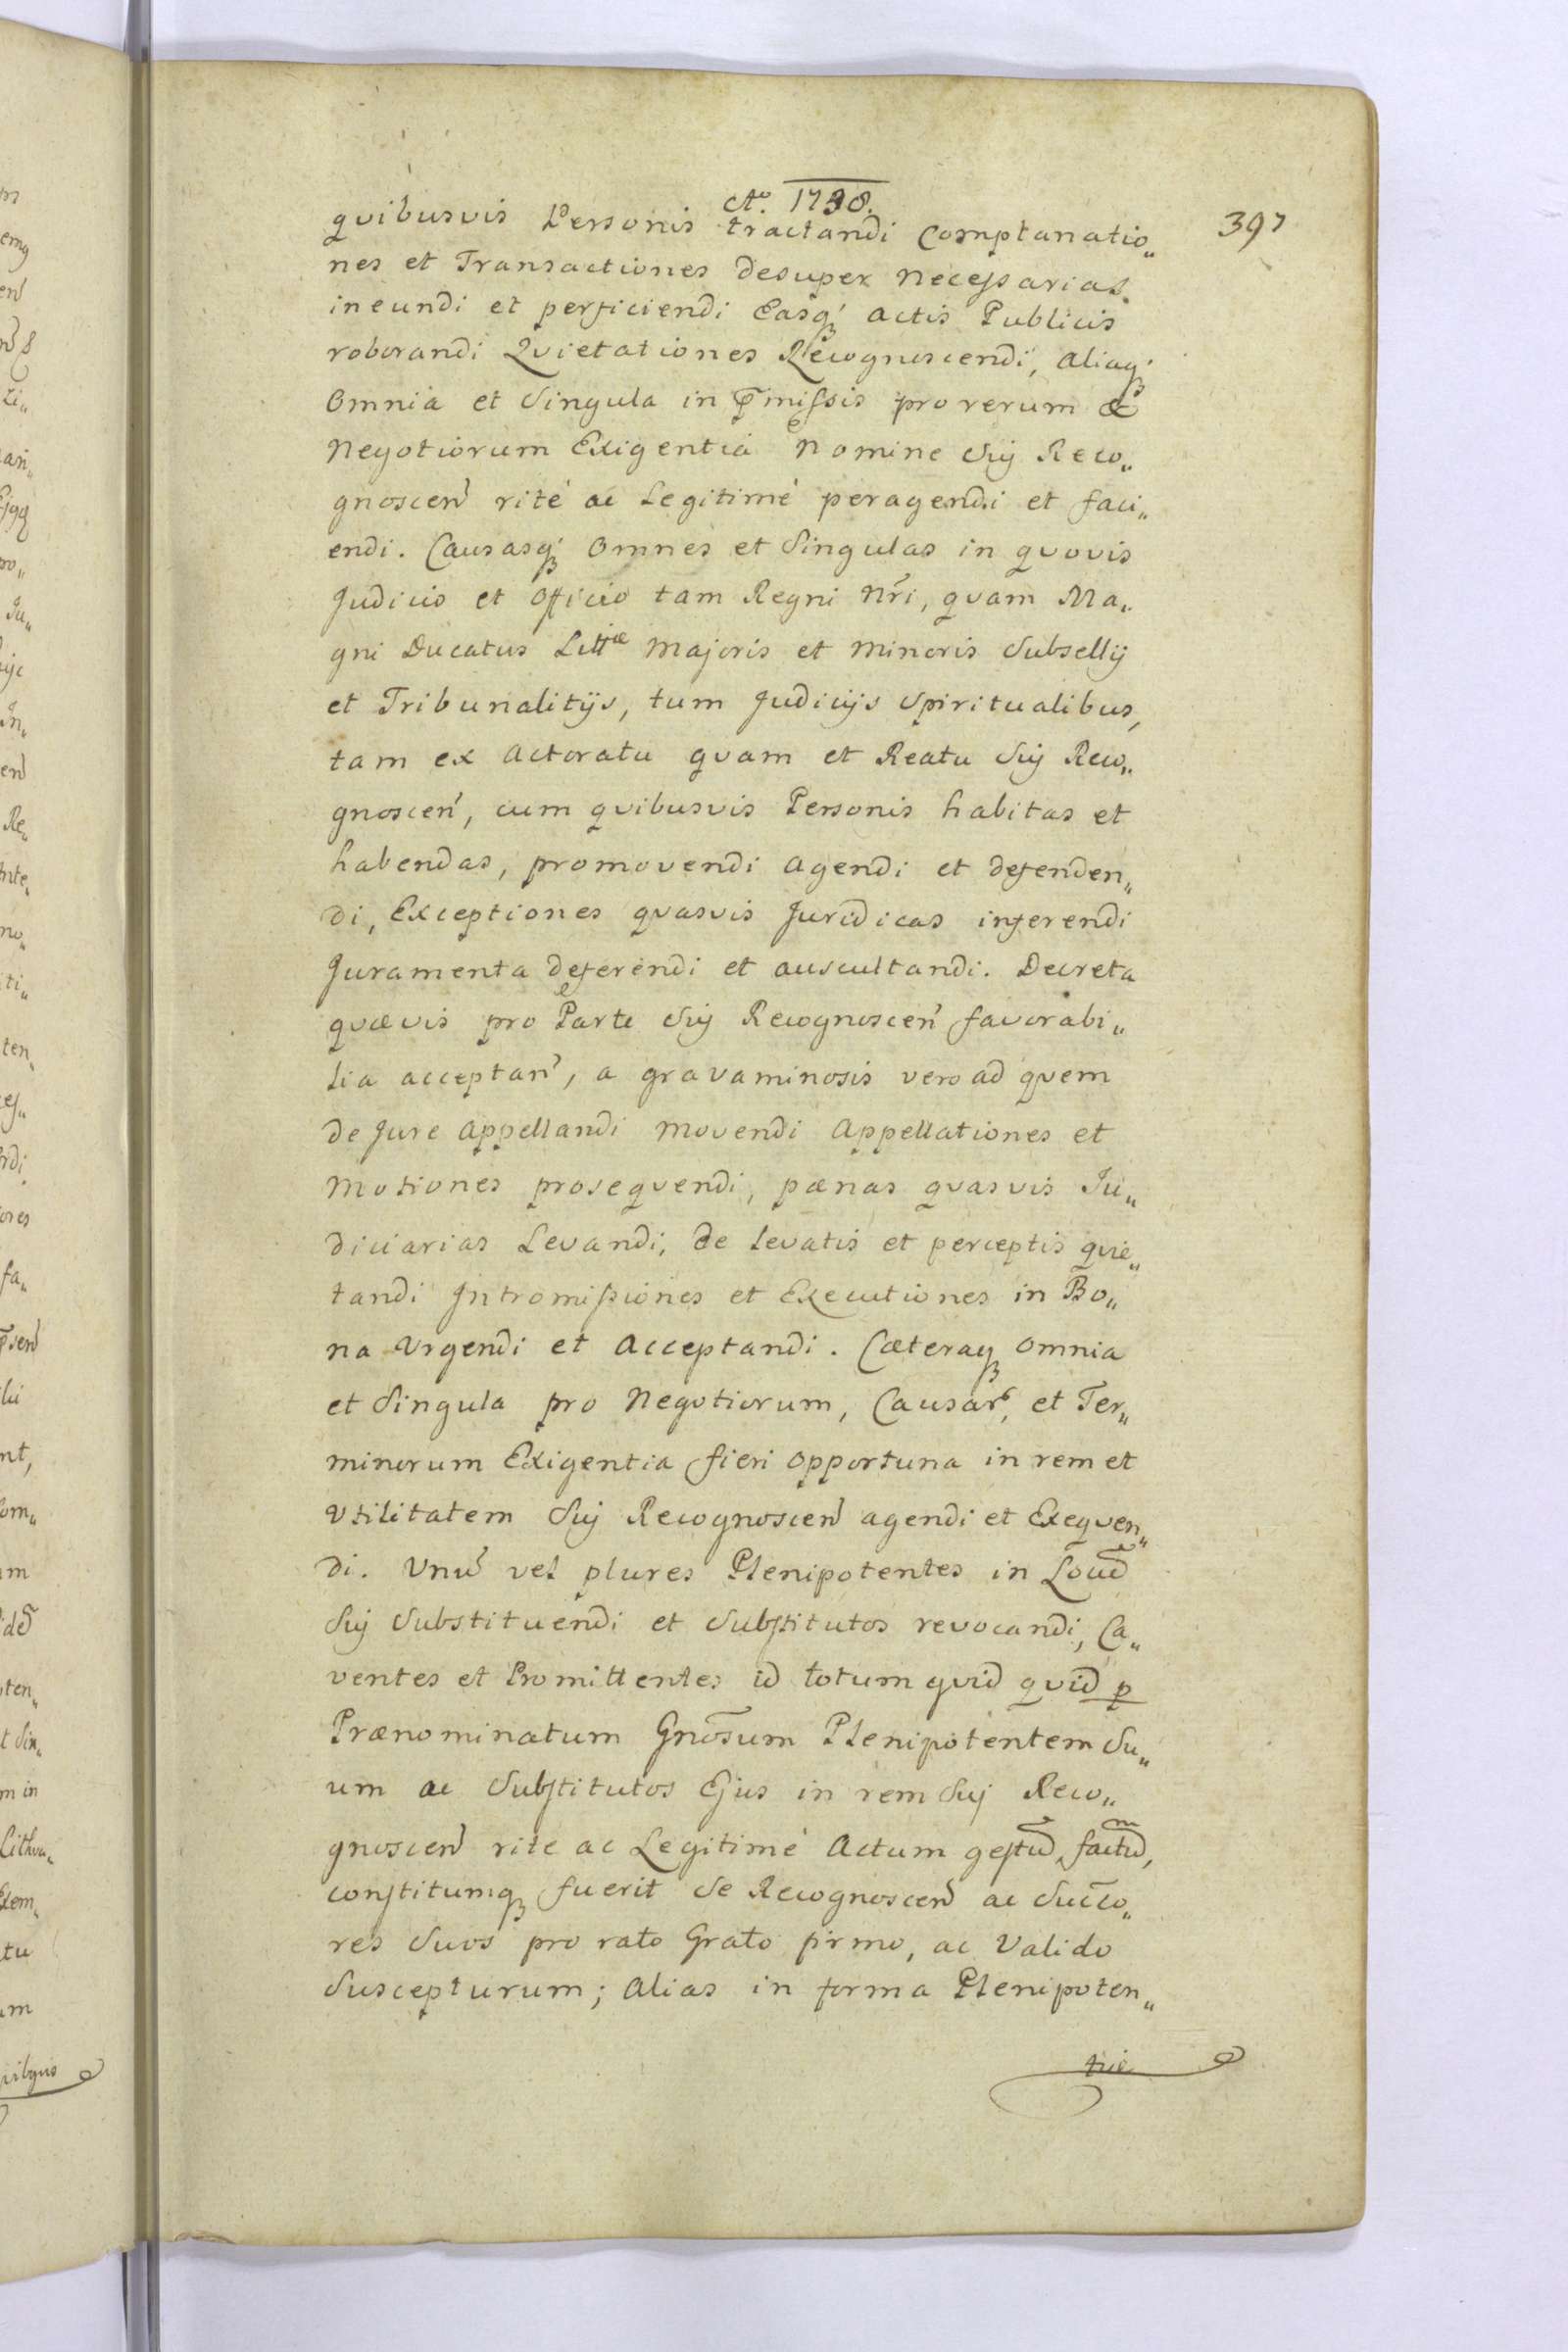 Aō. 1738.
397
quibusvis Personis tractandi Complanatio„
nes et Transactiones desuper necessarias
ineundi et perficiendi Easq; actis Publicis
roborandi Quietationes Recognoscendi, aliaq;
Omnia et Singula in p̄missis pro rerum &
Negotiorum Exigentia Nomine Sui Reco„
gnoscen̄ rité ac Legitimé peragendi et faci„
endi. Causasq; Omnes et Singulas in quovis
Judicio et Officio tam Regni Nr̄i, quam Ma„
gni Ducatus Littæ Majoris et Minoris Subsellij
et Tribunalitijs, tum Judicijs Spiritualibus,
tam ex Actoratu quam et Reatu Sui Reco„
gnoscen̄, cum quibusvis Personis habitas et
habendas, promovendi agendi et defenden„
di, Exceptiones quasvis Juridicas inferendi
Juramenta deferendi et auscultandi. Decreta
quævis pro Parte Sui Recognoscen̄ favorabi„
lia acceptan̄, a gravaminosis vero ad quem
de Jure Appellandi Movendi Appellationes et
Motiones prosequendi, pænas quasvis Ju„
diciarias Levandi, de levatis et perceptis quie„
tandi Intromissiones et Executiones in Bo„
na Urgendi et Acceptandi. Cæteraq; Omnia
et Singula pro Negotiorum, Causar̄, et Ter„
minorum Exigentia fieri Opportuna in rem et
Utilitatem Sui Recognoscen̄ agendi et Exequen„
di. Unū vel plures Plenipotentes in Locū
Sui Substituendi et Substitutos revocandi, Ca„
ventes et Promittentes id totum quid quid p
Prænominatum Gnōsum Plenipotentem Su„
um ac Substitutos Ejus in rem Sui Reco„
gnoscen̄ rite ac Legitimé Actum gestū, factū,
constitumq; fuerit Se Recognoscen̄ ac Succo„
res Suos pro rato Grato firmo, ac Valido
Suscepturum; Alias in forma Plenipoten„
tiæ